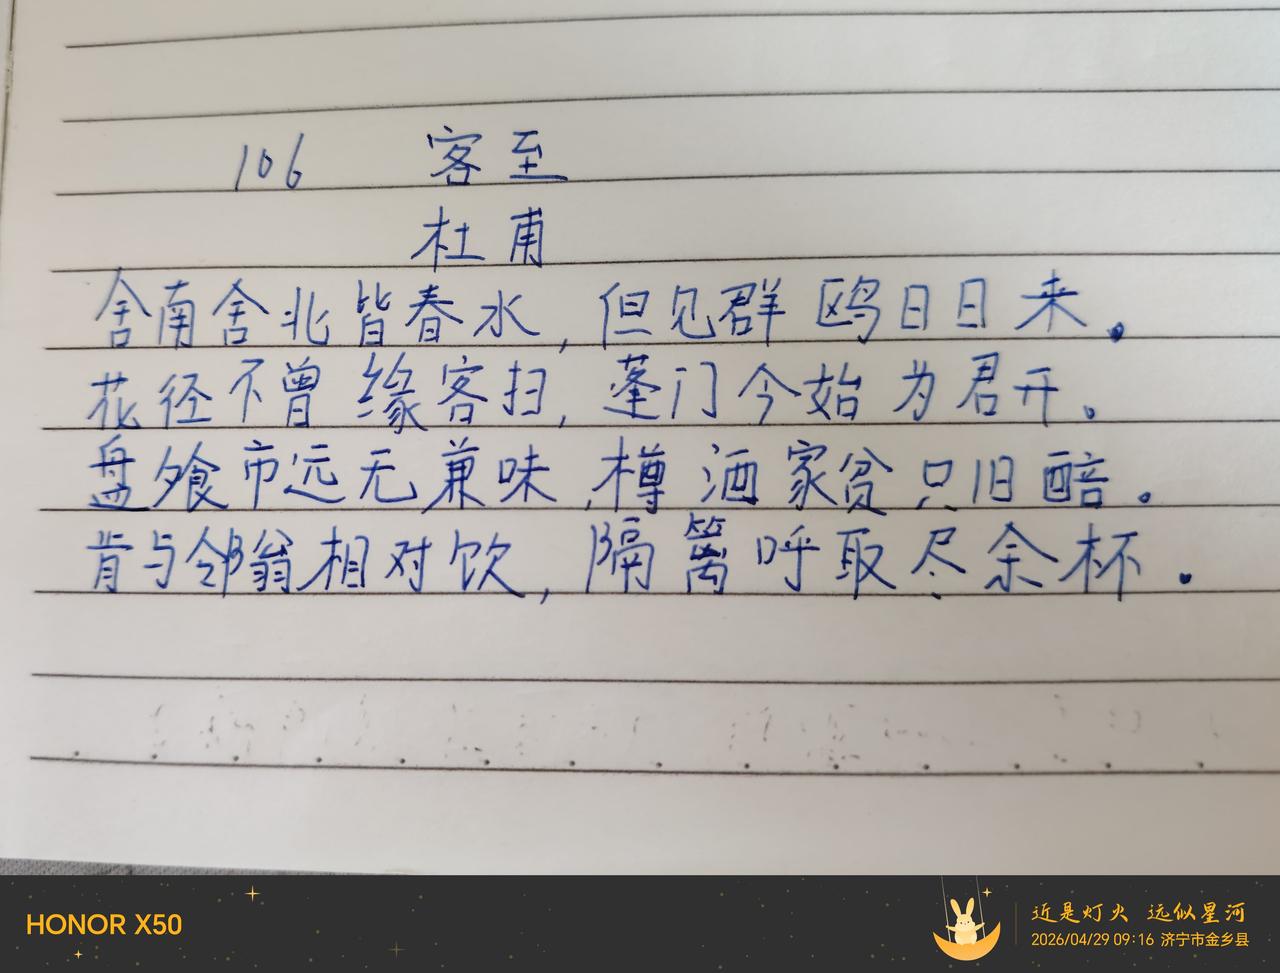 106 客至
杜甫
舍南舍北皆春水,但见群鸥日日来。
花径不曾缘客扫,蓬门今始为君开。
盘飧市远无兼味,樽酒家贫只旧醅。
肯与邻翁相对饮,隔篱呼取尽余杯.
HONOR X50
近是灯火 远似星河
2026/04/29 09:16 济宁市金乡县